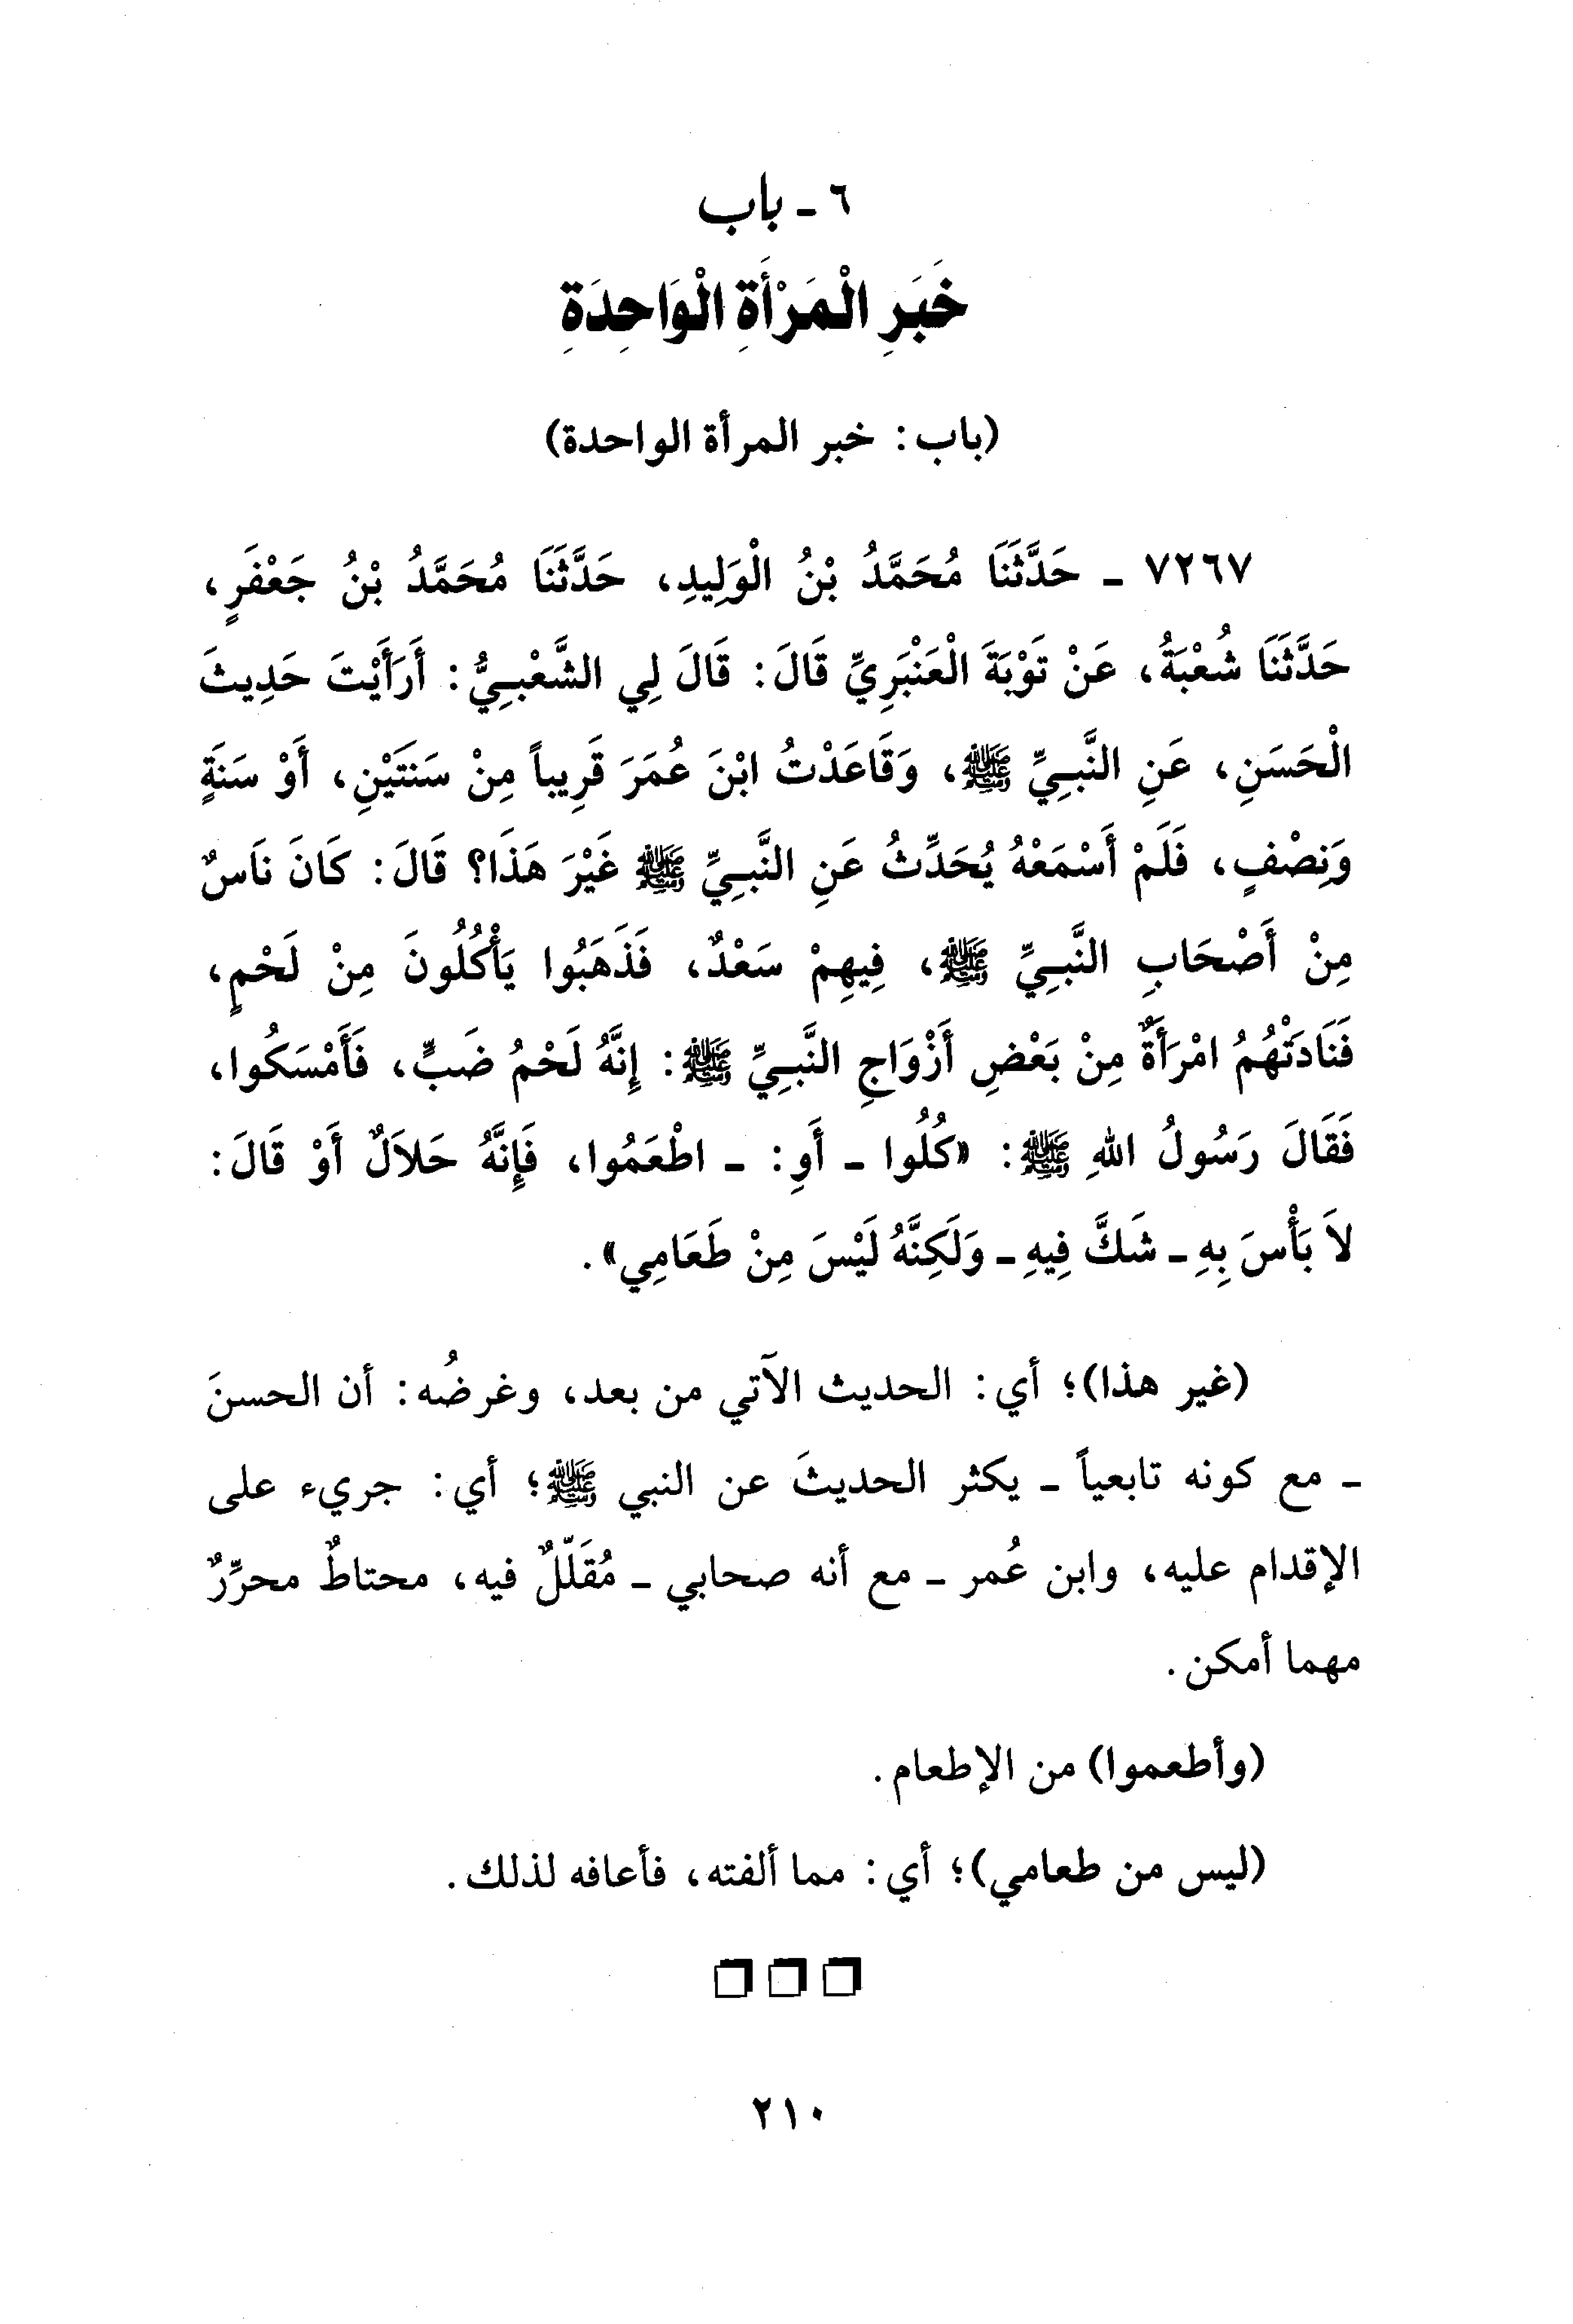 ٦ - باب
خَبَرِ الْمَرْأَةِ الْوَاحِدَةِ
(باب: خبر المرأة الواحدة)
٧٢٦٧ - حَدَّثَنَا مُحَمَّدُ بْنُ الْوَلِيدِ، حَدَّثَنَا مُحَمَّدُ بْنُ جَعْفَرٍ،
حَدَّثَنَا شُعْبَةُ، عَنْ تَوْبَةَ الْعَنْبَرِيِّ قَالَ: قَالَ لِي الشَّعْبِيُّ: أَرَأَيْتَ حَدِيثَ
الْحَسَنِ، عَنِ النَّبِيِّ ﷺ، وَقَاعَدْتُ ابْنَ عُمَرَ قَرِيباً مِنْ سَنَتَيْنِ، أَوْ سَنَةٍ
وَنِصْفٍ، فَلَمْ أَسْمَعْهُ يُحَدِّثُ عَنِ النَّبِيِّ ﷺ غَيْرَ هَذَا؟ قَالَ: كَانَ نَاسٌ
مِنْ أَصْحَابِ النَّبِيِّ ﷺ، فِيهِمْ سَعْدٌ، فَذَهَبُوا يَأْكُلُونَ مِنْ لَحْمٍ،
فَنَادَتْهُمُ امْرَأَةٌ مِنْ بَعْضِ أَزْوَاجِ النَّبِيِّ ﷺ: إِنَّهُ لَحْمُ ضَبٍّ، فَأَمْسَكُوا،
فَقَالَ رَسُولُ اللهِ ﷺ: «كُلُوا - أَوِ: - اطْعَمُوا، فَإِنَّهُ حَلاَلٌ أَوْ قَالَ:
لاَ بَأْسَ بِهِ - شَكَّ فِيهِ - وَلَكِنَّهُ لَيْسَ مِنْ طَعَامِي».
(غير هذا)؛ أي: الحديث الآتي من بعد، وغرضُه: أن الحسنَ
- مع كونه تابعياً - يكثر الحديثَ عن النبي ﷺ؛ أي: جريء على
الإقدام عليه، وابن عُمر - مع أنه صحابي - مُقَلِّلٌ فيه، محتاطٌ محرِّرٌ
مهما أمكن.
(وأطعموا) من الإطعام.
(ليس من طعامي)؛ أي: مما ألفته، فأعافه لذلك.
٢١٠